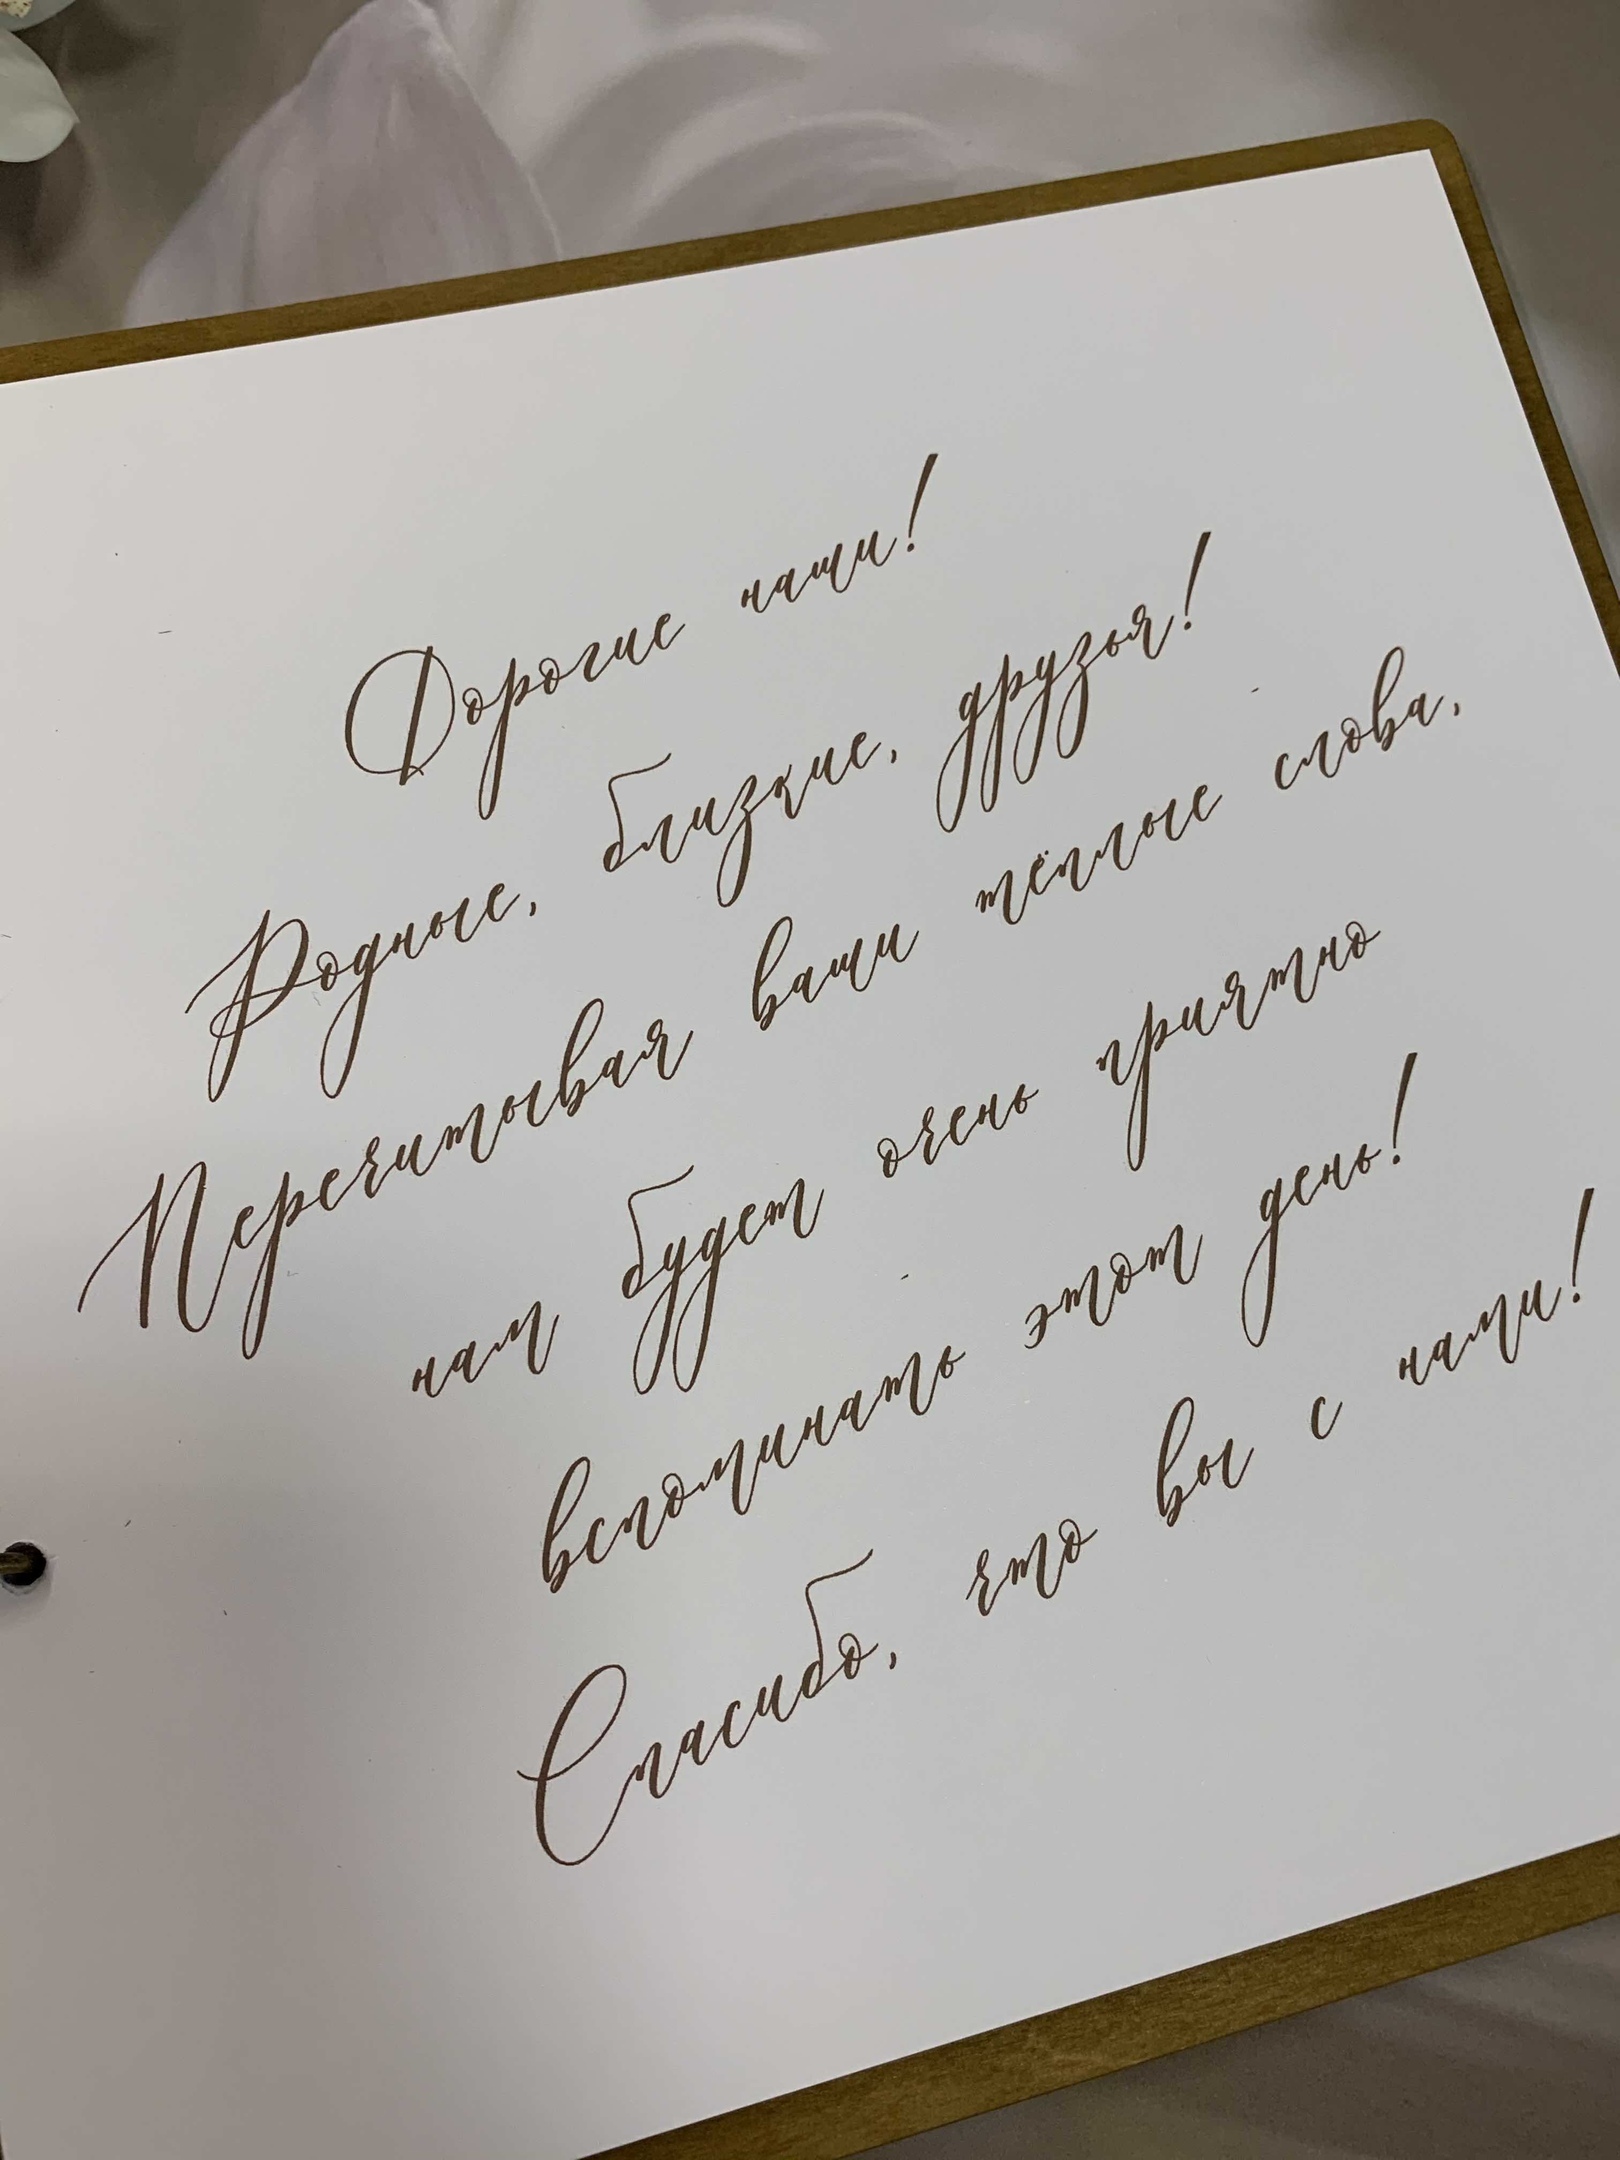 Дорогие наши!
Родные, близкие, друзья!
Перечитывая ваши тёплые слова,
нам будет очень приятно
вспоминать этот день!
Спасибо, что вы с нами!